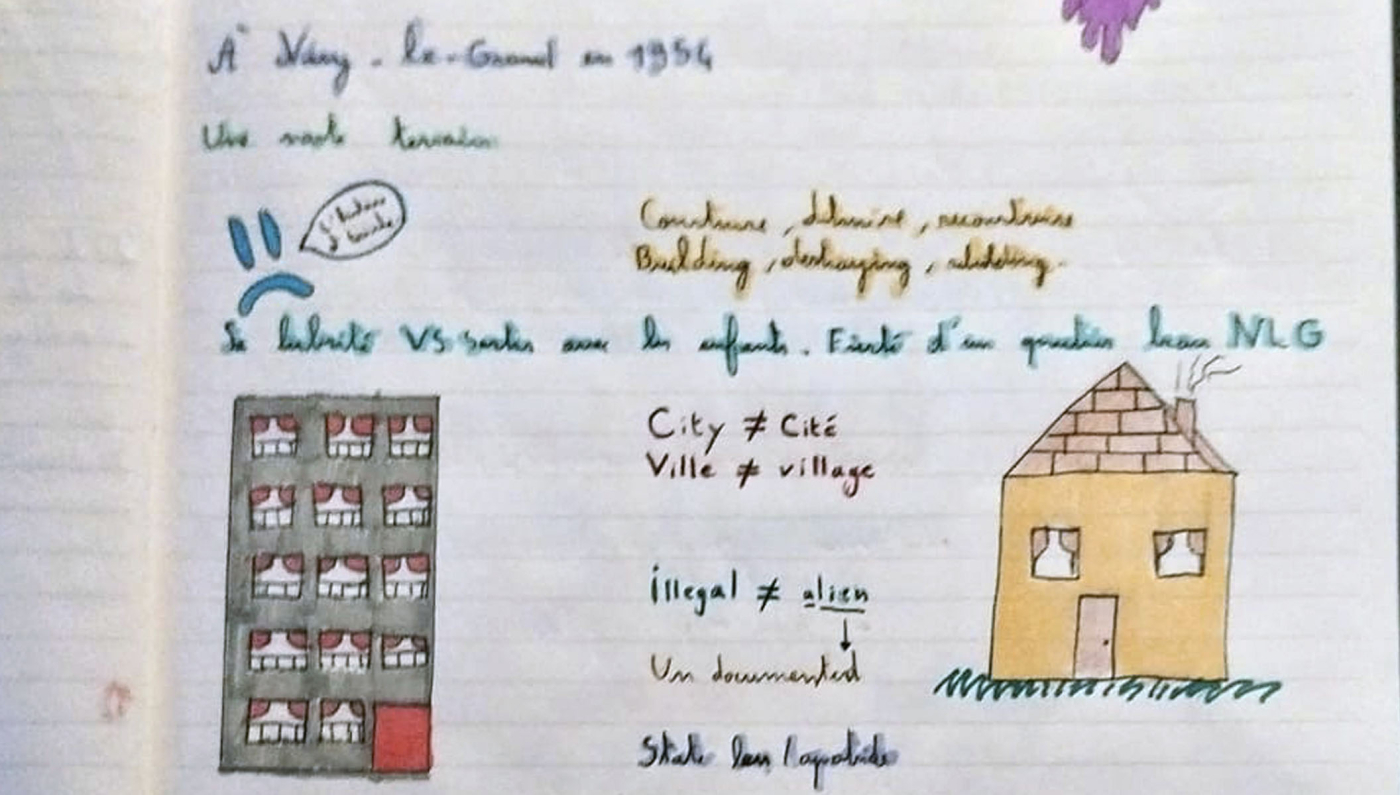 À Néry-le-Grand en 1954
Une vaste terrain
L'histoire
Construire, détruire, reconstruire
Building, destroying, rebuilding.
VS sortir avec les enfants. Fierté d'un quartier NLG
City ≠ Cité
Ville ≠ village
illegal ≠ alien
Un documented
State less / apatride